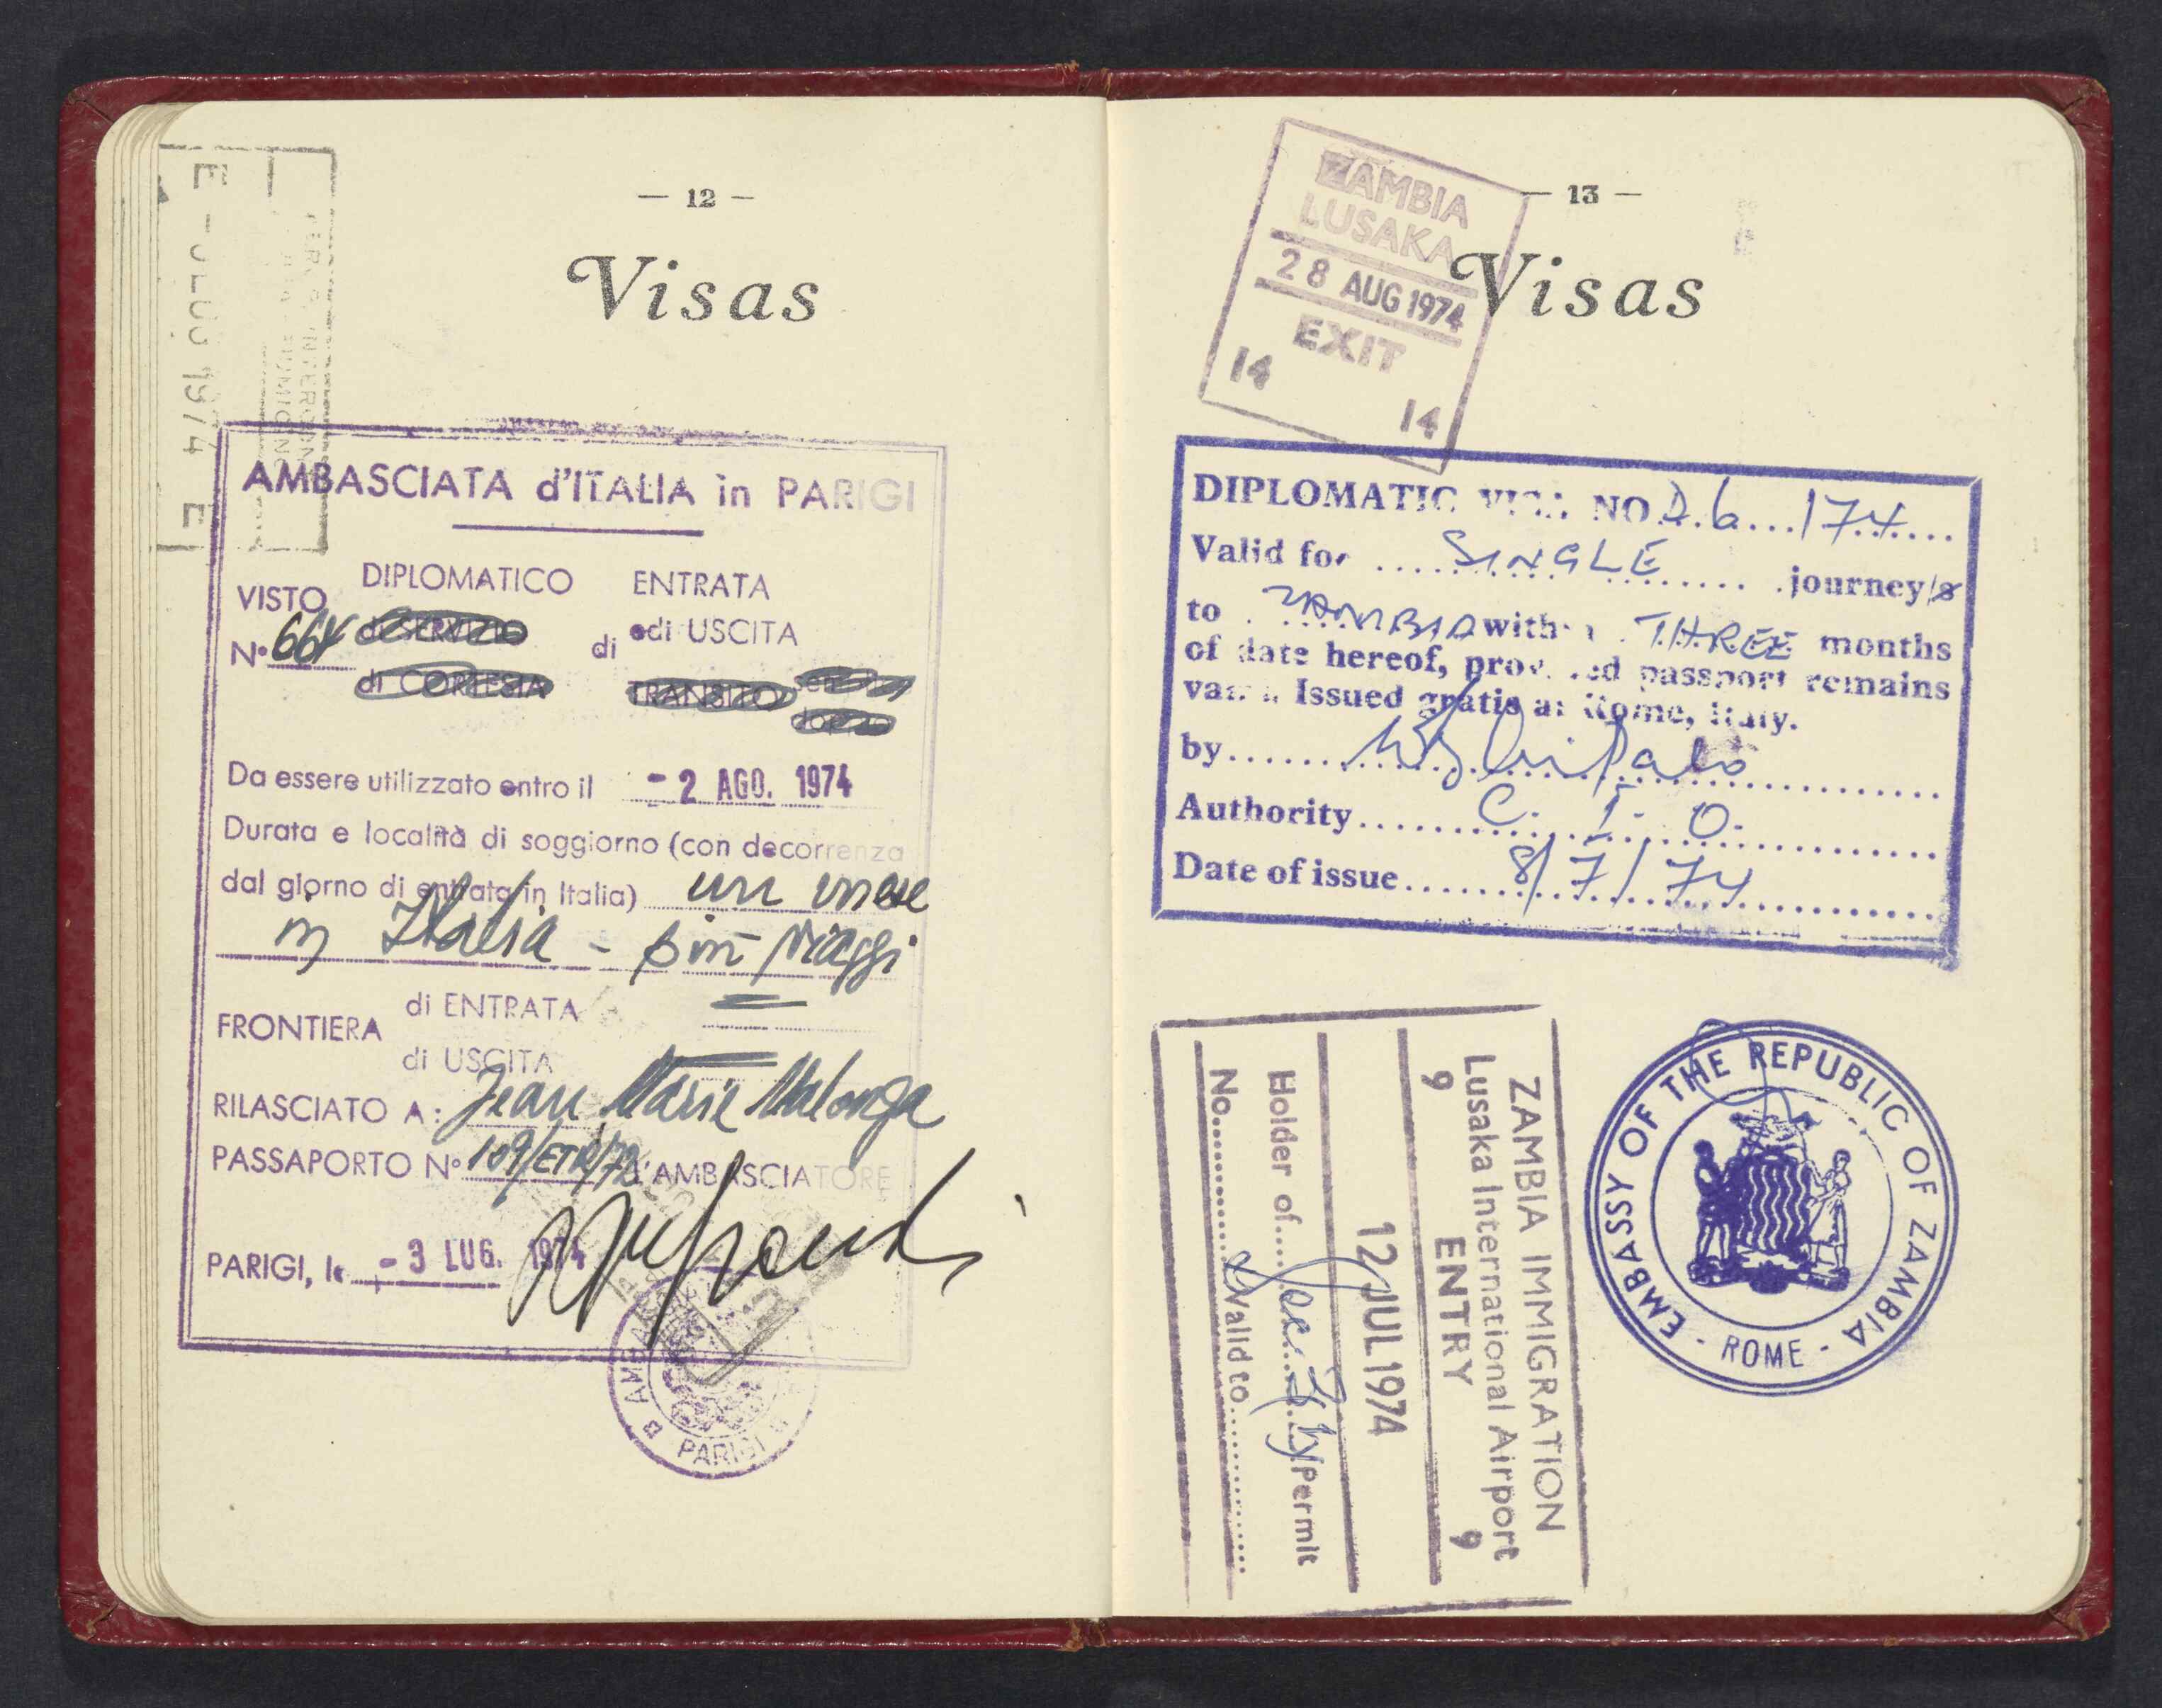 — 12 —
Visas
E - 1974 E
AMBASCIATA d'ITALIA in PARIGI
VISTO DIPLOMATICO ENTRATA
di SERVIZIO di edi USCITA
N° 664
di CORTESIA TRANSITO
Da essere utilizzato entro il - 2 AGO. 1974
Durata e località di soggiorno (con decorrenza
dal giorno di entrata in Italia) un mese
in Italia - più viaggi
FRONTIERA di ENTRATA
di USCITA
RILASCIATO A: Jean Marie Malonga
PASSAPORTO N° 109/ETR/72 L'AMBASCIATORE
PARIGI, le - 3 LUG. 1974
PARIGI
— 13 —
Visas
ZAMBIA
LUSAKA
28 AUG 1974
EXIT
14
14
DIPLOMATIC VISA NO D.6...174
Valid for SINGLE journey/s
to ZAMBIA within THREE months
of date hereof, provided passport remains
valid. Issued gratis at Rome, Italy.
by
Authority C. I. O.
Date of issue 8/7/74
ZAMBIA IMMIGRATION
Lusaka International Airport
9 ENTRY 9
12 JUL 1974
Holder of Permit
No. Valid to
EMBASSY OF THE REPUBLIC OF ZAMBIA
- ROME -